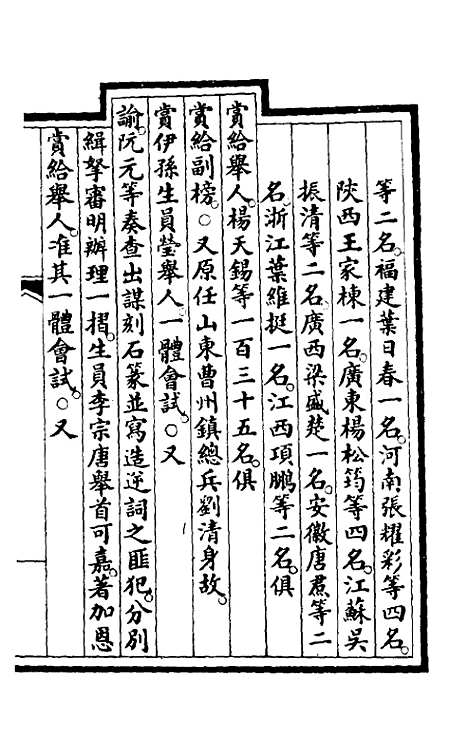 等二名。福建葉日春一名。河南張耀彩等四名。
陝西王家棟一名。廣東楊松筠等四名。江蘇吳
振清等二名。廣西梁盛楚一名。安徽唐焄等二
名。浙江葉維挺一名。江西項鵬等二名。俱
賞給舉人。楊天錫等一百三十五名。俱
賞給副榜。○又原任山東曹州鎮總兵劉清身故。
賞伊孫生員瑩舉人一體會試。○又
諭。阮元等奏查出謀刻石篆並寫造逆詞之匪犯。分別
緝拏審明辦理一摺。生員李宗唐舉首可嘉。著加恩
賞給舉人。准其一體會試。○又